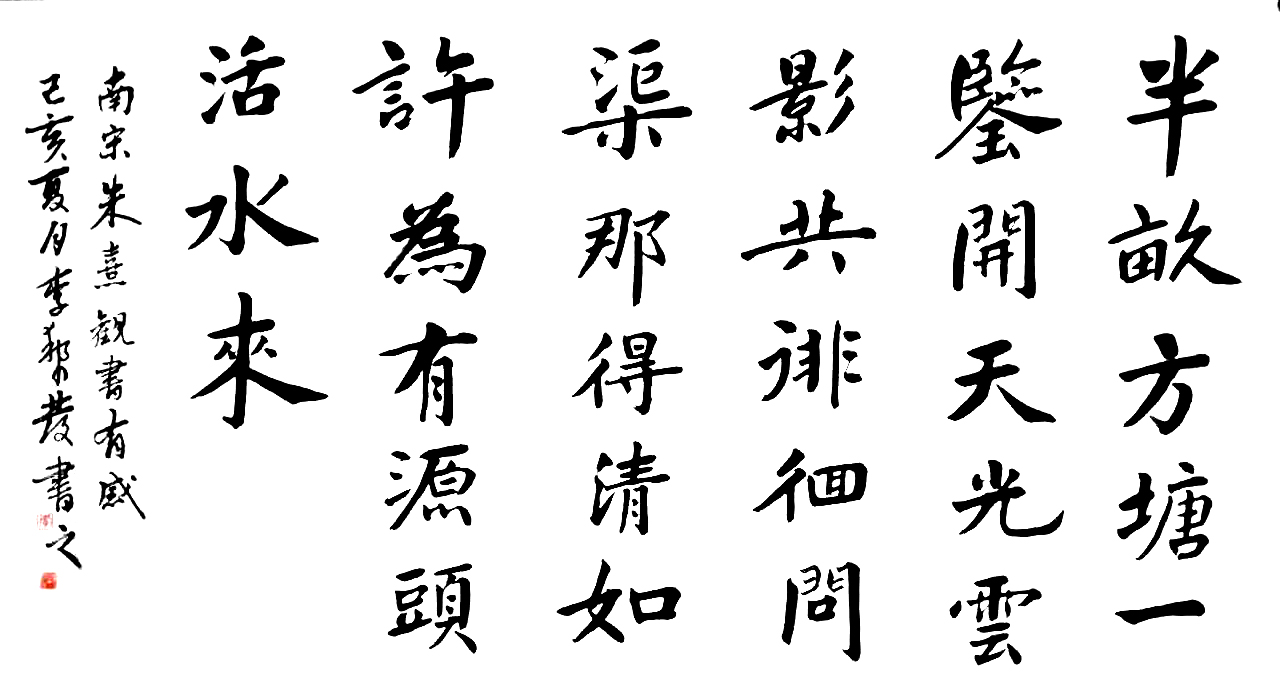 半畝方塘一
鑒開天光雲
影共徘徊問
渠那得清如
許為有源頭
活水來
南宋朱熹觀書有感
己亥夏月李發書之